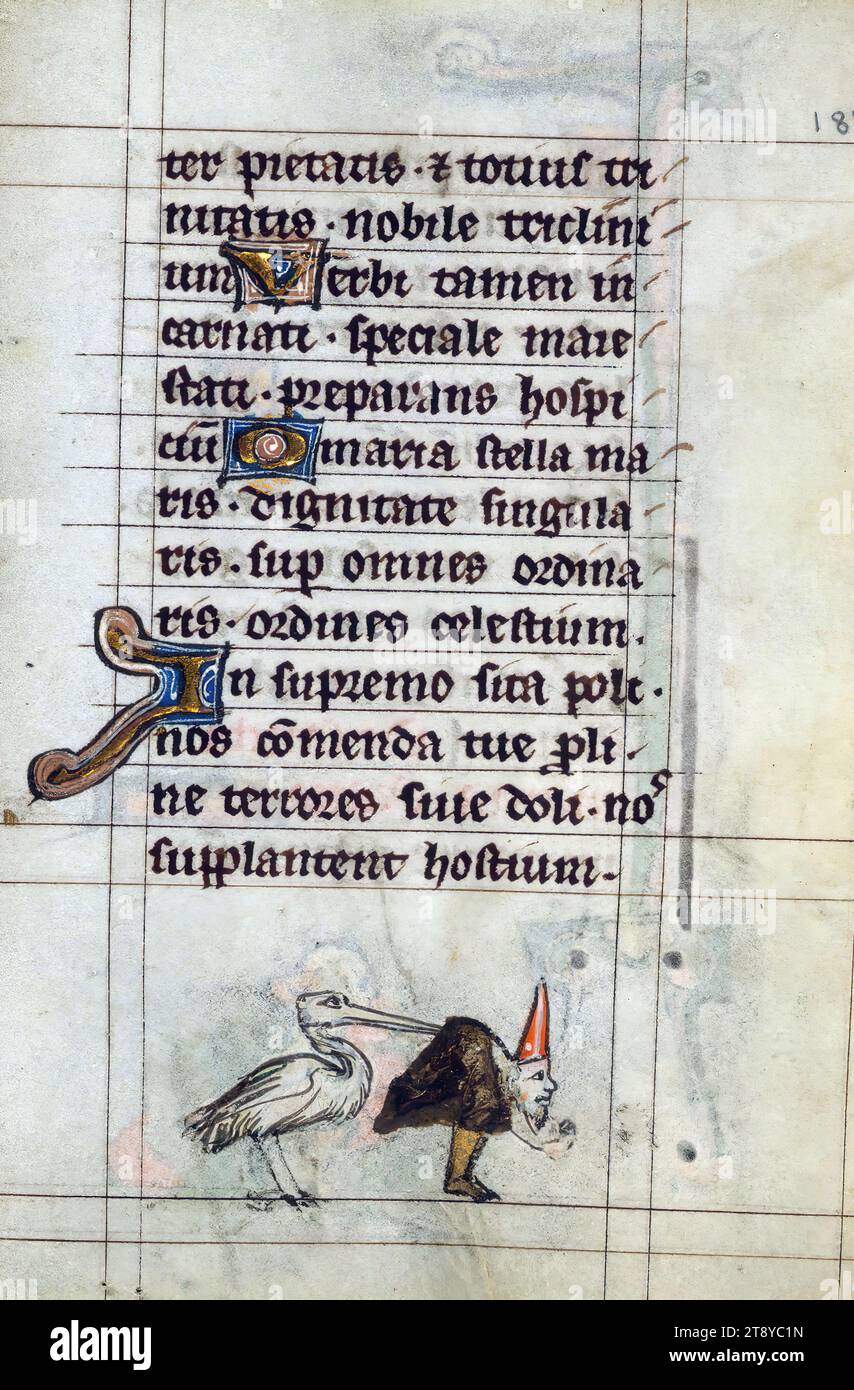 187
ter pietatis · ⁊ totius tri
nitatis · nobile triclini
um Verbi tamen in
carnati · speciale maie
stati · preparans hospi
ciū O maria stella ma
ris · dignitate singula
ris · sup omnes ordina
ris · ordines celestium ·
In supremo sita poli ·
nos cōmenda tue ꝓli ·
ne terrores siue doli · noˢ
supplantent hostium ·
alamy
Image ID: 2T8YC1N
www.alamy.com